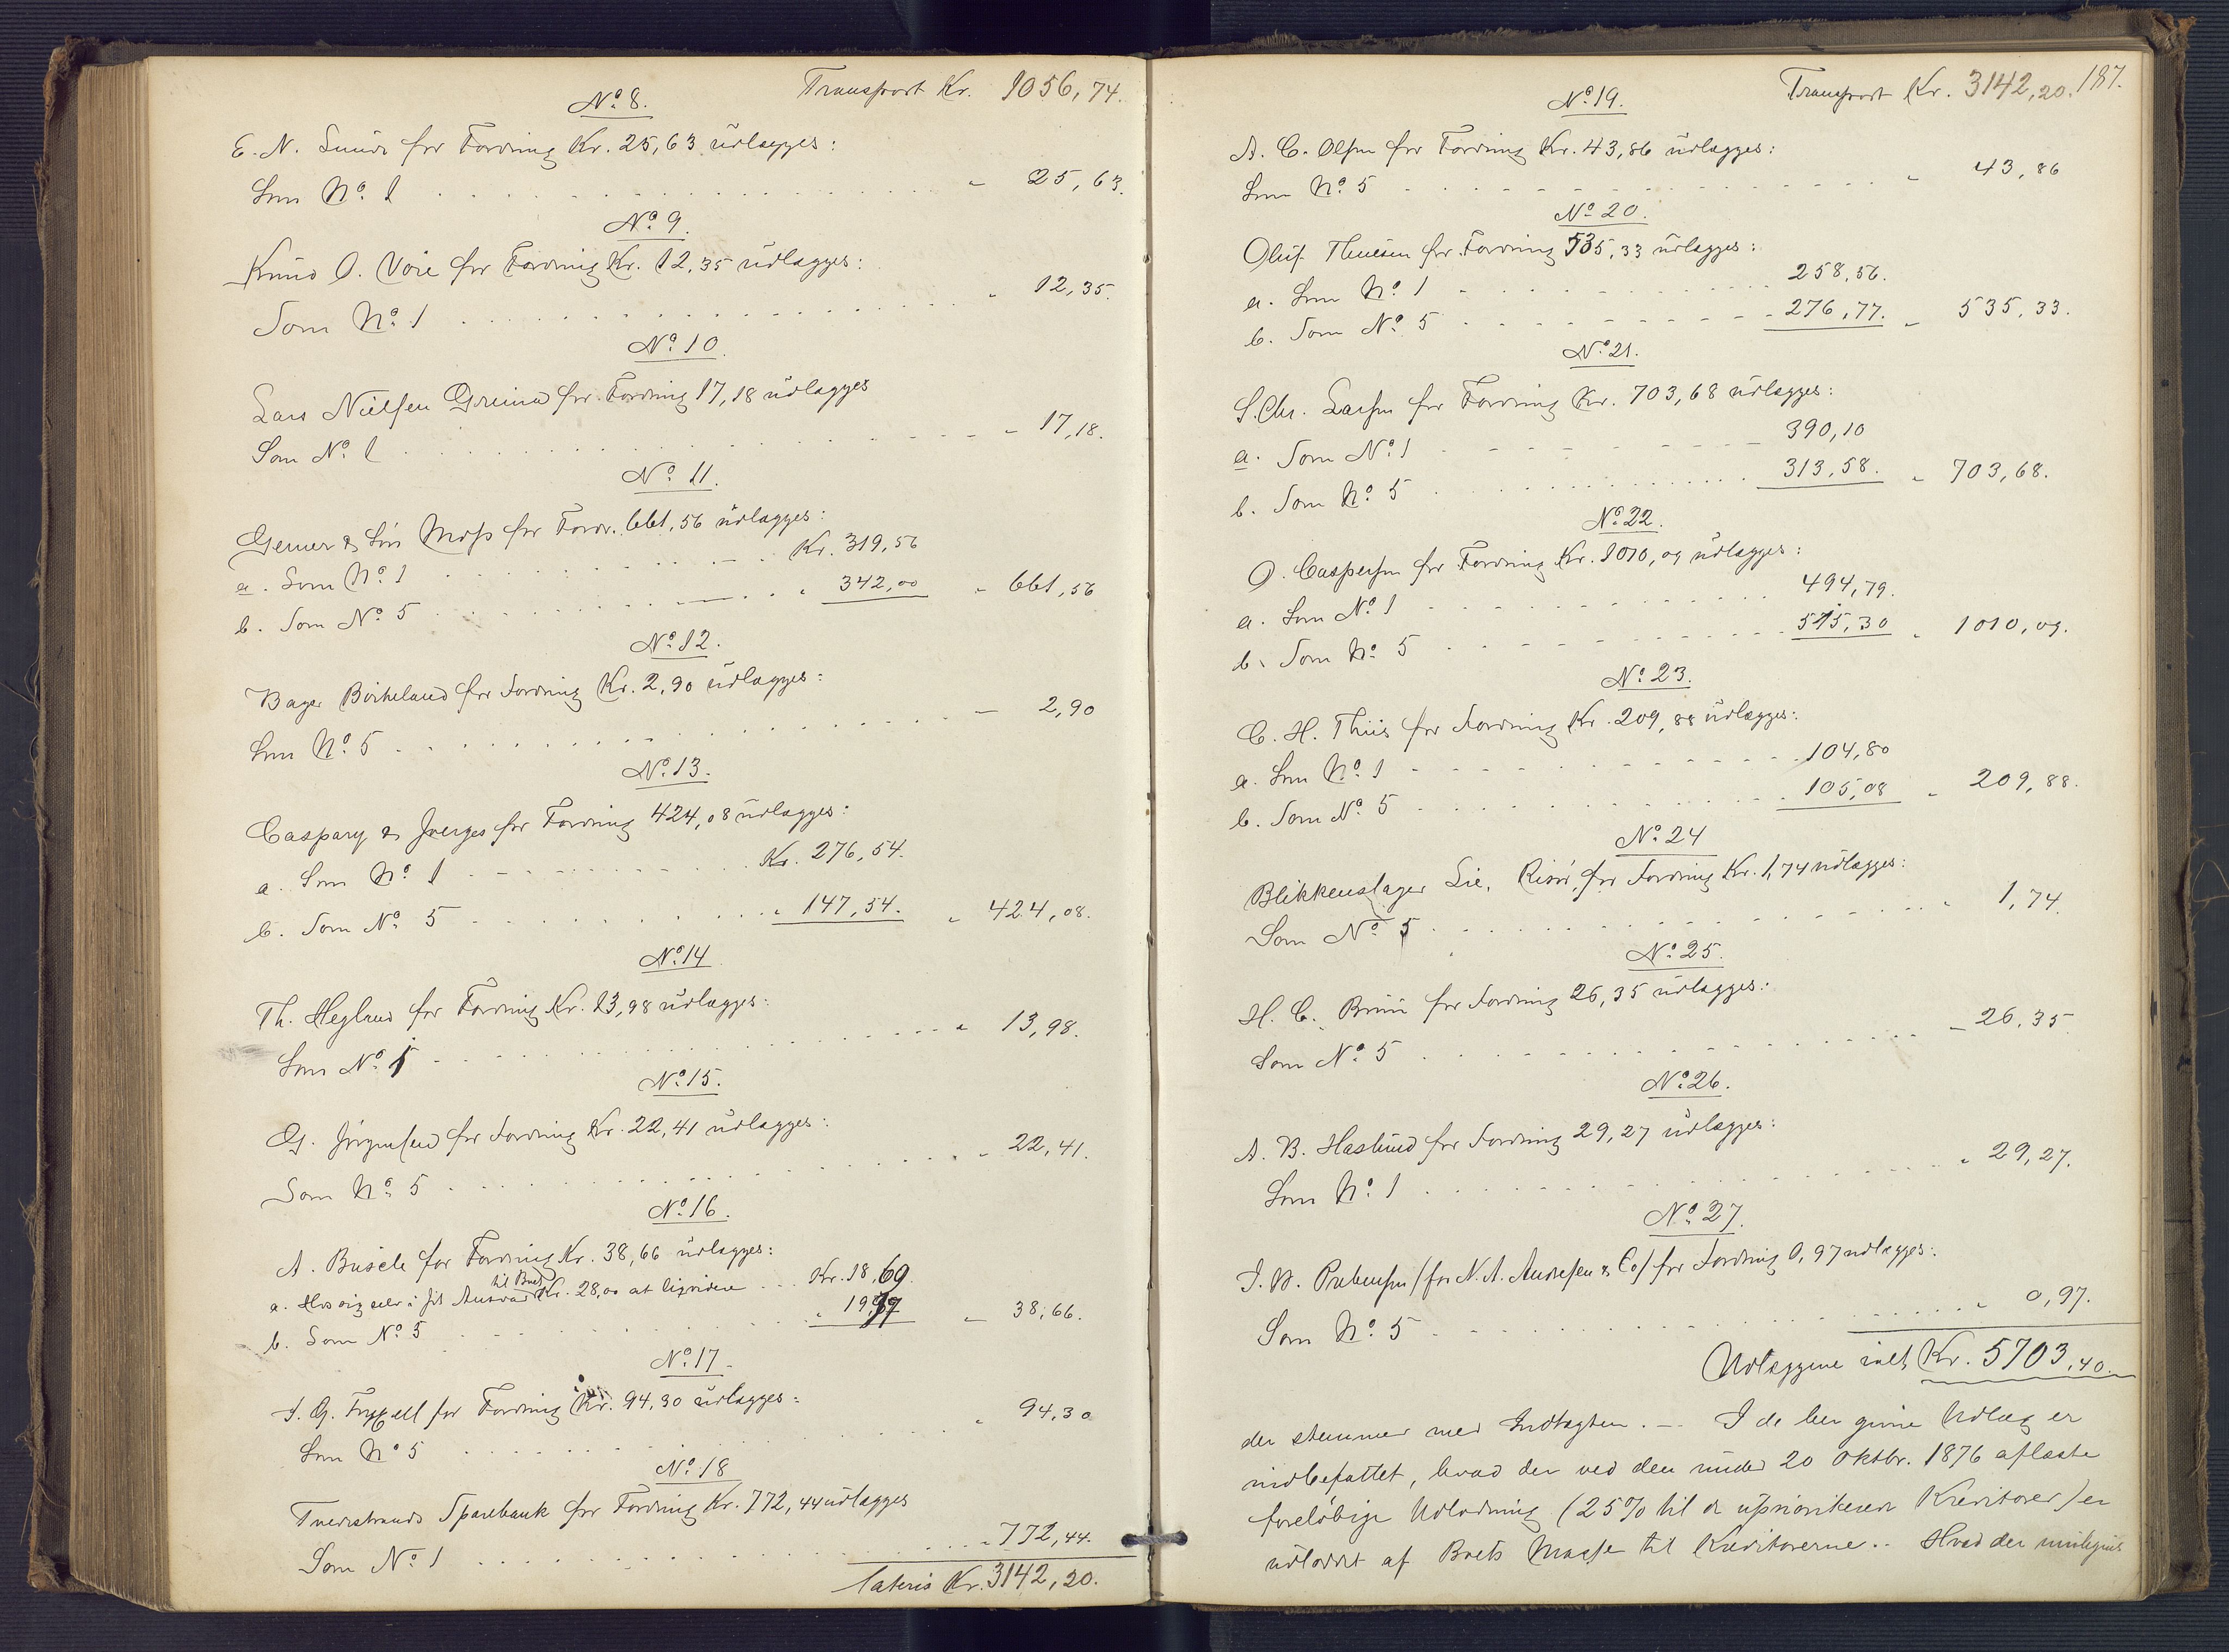 Transport Kr. 1056,74.
No 8.
E. N. Sunds for Fordring Kr. 25,63 udlægges:
Som No 1 " 25,63.
No 9.
Knud O. Voie for Fordring Kr. 12,35 udlægges:
Som No 1 " 12,35.
No 10.
Lars Nielsen for Fordring 17,18 udlægges
Som No 1 " 17,18.
No 11.
& Søn Moss for Fordr. 661,56 udlægges:
a. Som No 1 Kr. 319,56
b. Som No 5 " 342,00 " 661,56
No 12.
Bager Birkeland for Fordring Kr. 2,90 udlægges:
Som No 5 — 2,90
No 13.
Caspary & Joerges for Fordring 424,08 udlægges:
a. Som No 1 Kr. 276,54.
b. Som No 5 " 147,54. " 424,08.
No 14
Th. Hegland for Fordring Kr. 13,98 udlægges:
Som No " 13,98.
No 15.
G. Jörgensen for Fordring Kr. 22,41 udlægges:
Som No 5 " 22,41.
No 16.
A. Busch for Fordring Kr. 38,66 udlægges:
a. Hos sig selv i sit Ansvar til Boet Kr. 28,00 at liqvidere Kr. 18,69.
b. Som No 5 " 19,97 " 38,66.
No 17
J. G. for Fordring Kr. 94,30 udlægges:
Som No 5 " 94,30
No 18
Tvedestrands Sparebank for Fordring Kr. 772,44 udlægges
Som No 1 " 772,44.
lateris Kr. 3142,20.
Transport Kr. 3142,20. 187.
No 19.
A. C. Olsen for Fordring Kr. 43,86 udlægges:
Som No 5 " 43,86
No 20.
Oluf Thuesen for Fordring 535,33 udlægges:
a. Som No 1 258,56.
b. Som No 5 276,77. " 535,33.
No 21.
S. Chr. Larsen for Fordring Kr. 703,68 udlægges:
a. Som No 1 390,10
b. Som No 5 313,58. " 703,68.
No 22.
O. Caspersen for Fordring Kr. 1010,09 udlægges:
a. Som No 1 494,79.
b. Som No 5 515,30 " 1010,09.
No 23.
C. H. Thiis for Fordring Kr. 209,88 udlægges:
a. Som No 1 104,80
b. Som No 5 105,08 " 209,88.
No 24
Blikkenslager Lie, Risør, for Fordring Kr. 1,74 udlægges:
Som No 5 " 1,74.
No 25.
H. C. Bruu for Fordring 26,35 udlægges:
Som No 5 — 26,35
No 26.
A. B. Haslund for Fordring 29,27 udlægges:
Som No 1 " 29,27.
No 27.
J. N. Prebensen /for N. A. Andresen & Co/ for Fordring 0,97 udlægges:
Som No 5 " 0,97.
Udlæggene ialt Kr. 5703,40.
der stemmer med Indtægten. — I de her givne Udlæg er
indbefattet, hvad der ved den under 20 Oktbr. 1876 aflæste
foreløbige Udlodning (25% til de uprioriterede Kreditorer) er
udloddet af Boets Masse til Kreditorerne. Hvad der